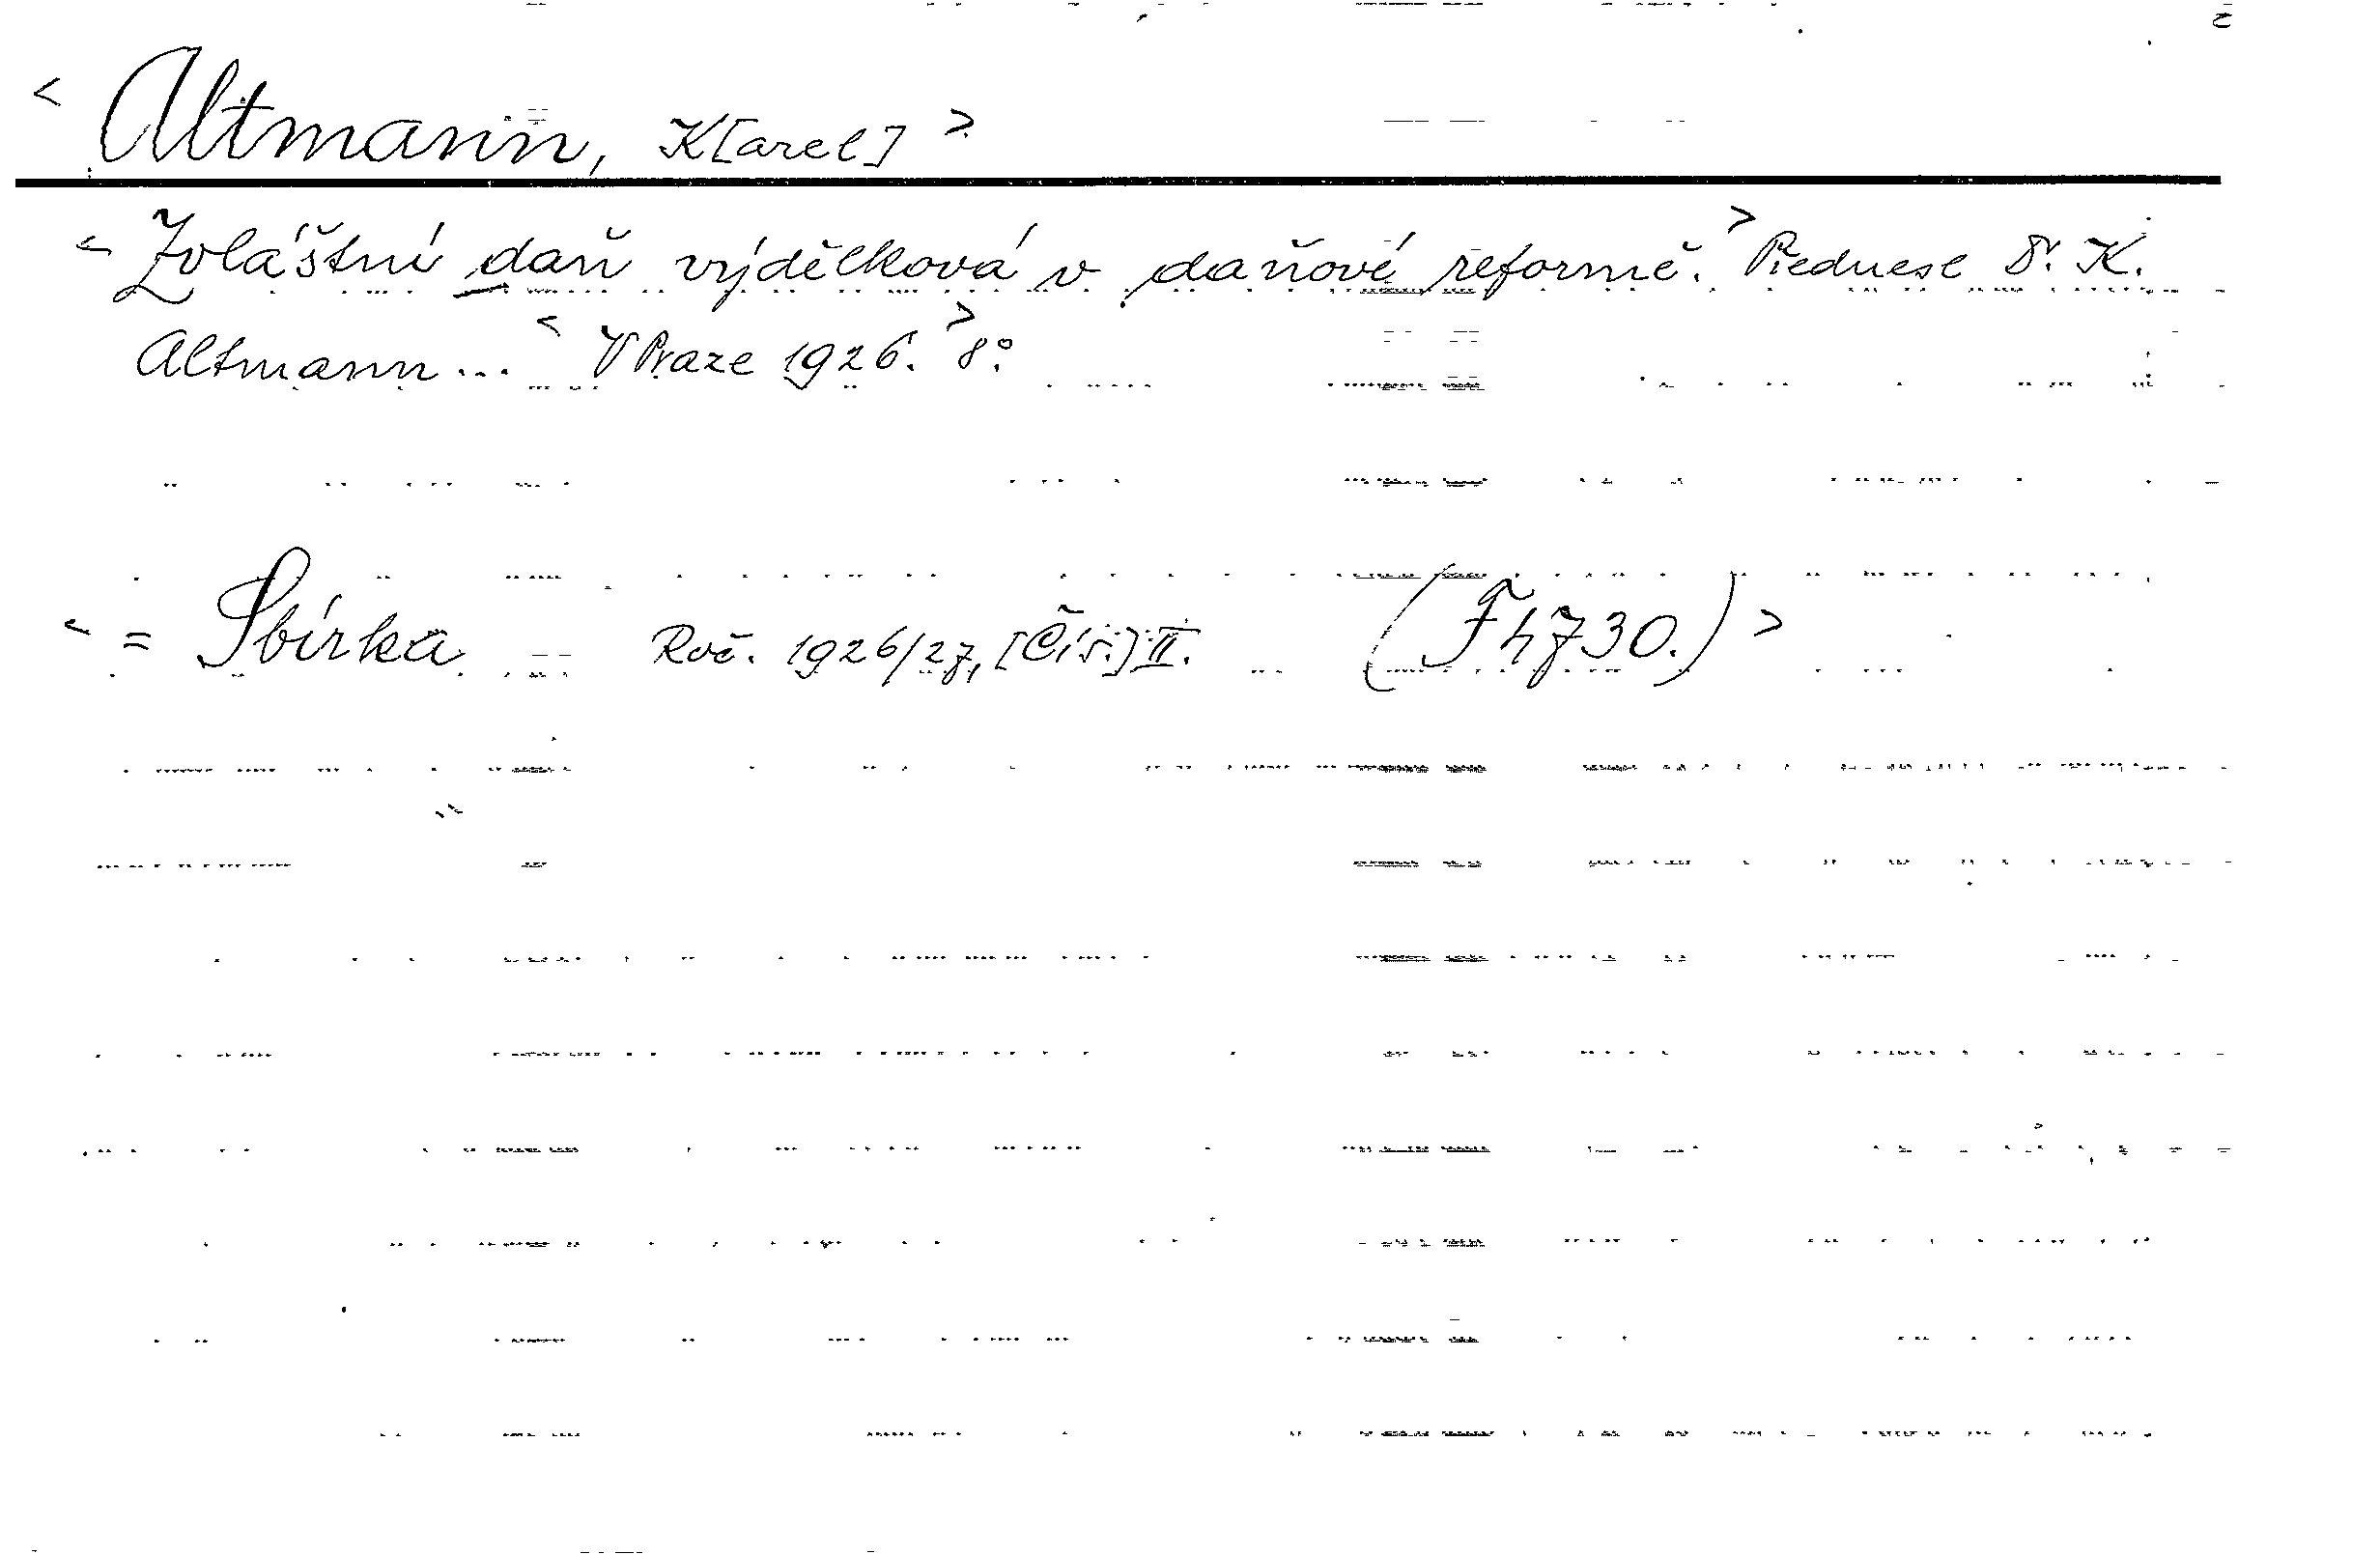 < Altmann, K[arel] >
< Zvláštní daň výdělková v daňové reformě. > Přednesl Dr. K.
Altmann... < V Praze 1926. > 8°.
< = Sbírka Roč. 1926/27, [Čís.] II. (F h 730.) >